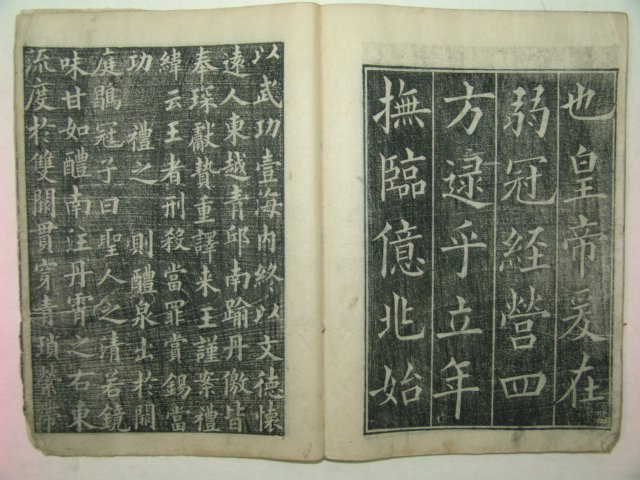 也皇帝爰在
弱冠経營四
方逮乎立年
撫臨億兆始
以武功壹海内終以文徳懐
遠人東越青邱南踰丹徼皆
奉琛獻贄重譯来王謹案禮
緯云王者刑殺當罪賞錫當
功 禮之 則醴泉出於闕
庭鶡冠子曰聖人之清若鏡
味甘如醴南注丹霄之右東
流度於雙闕貫穿青瑣縈帶